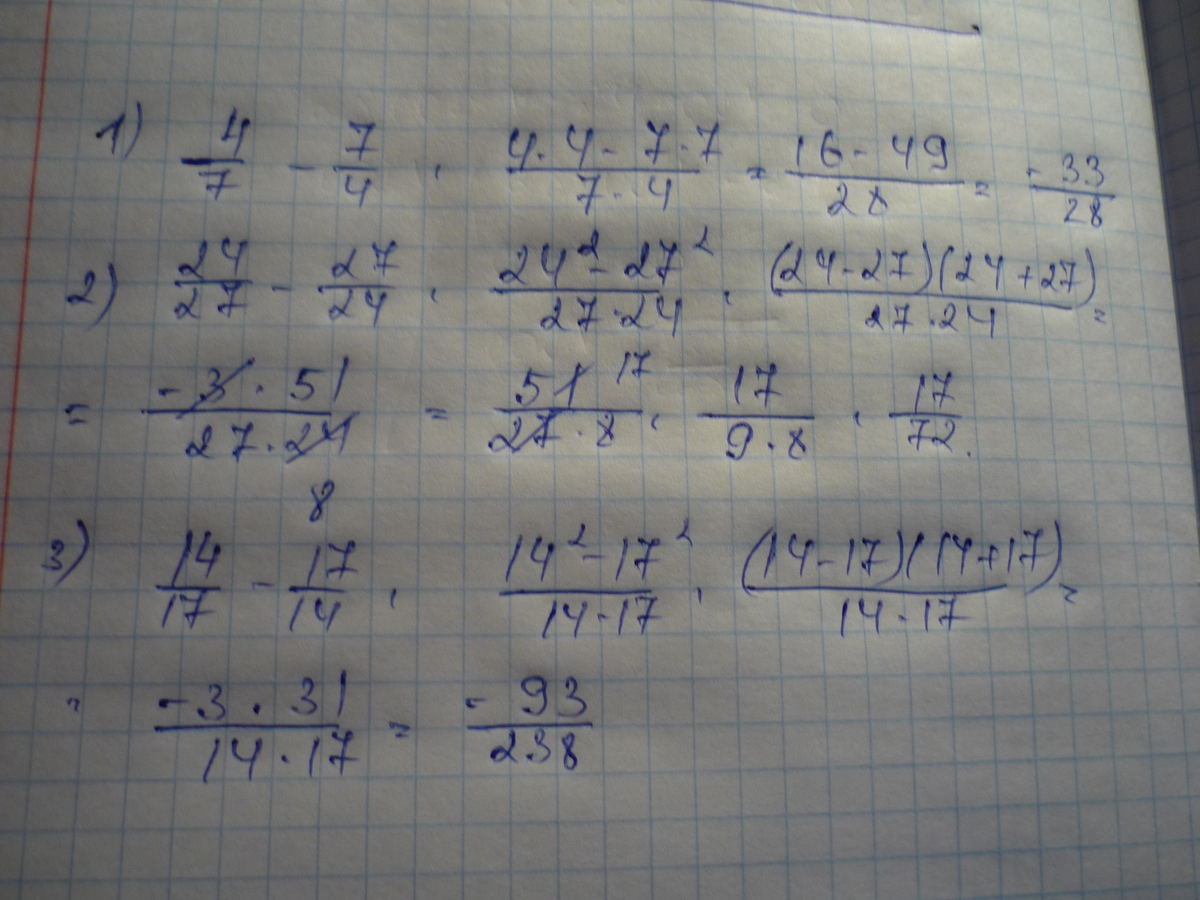 1) 4/7 - 7/4 = (4·4 - 7·7)/(7·4) = (16 - 49)/28 = -33/28
2) 24/27 - 27/24 = (24² - 27²)/(27·24) = ((24-27)(24+27))/(27·24) =
= (-3·51)/(27·24) 8 = 51/(27·8) 17 = 17/(9·8) = 17/72.
3) 14/17 - 17/14 = (14² - 17²)/(14·17) = ((14-17)(14+17))/(14·17) =
= (-3·31)/(14·17) = -93/238